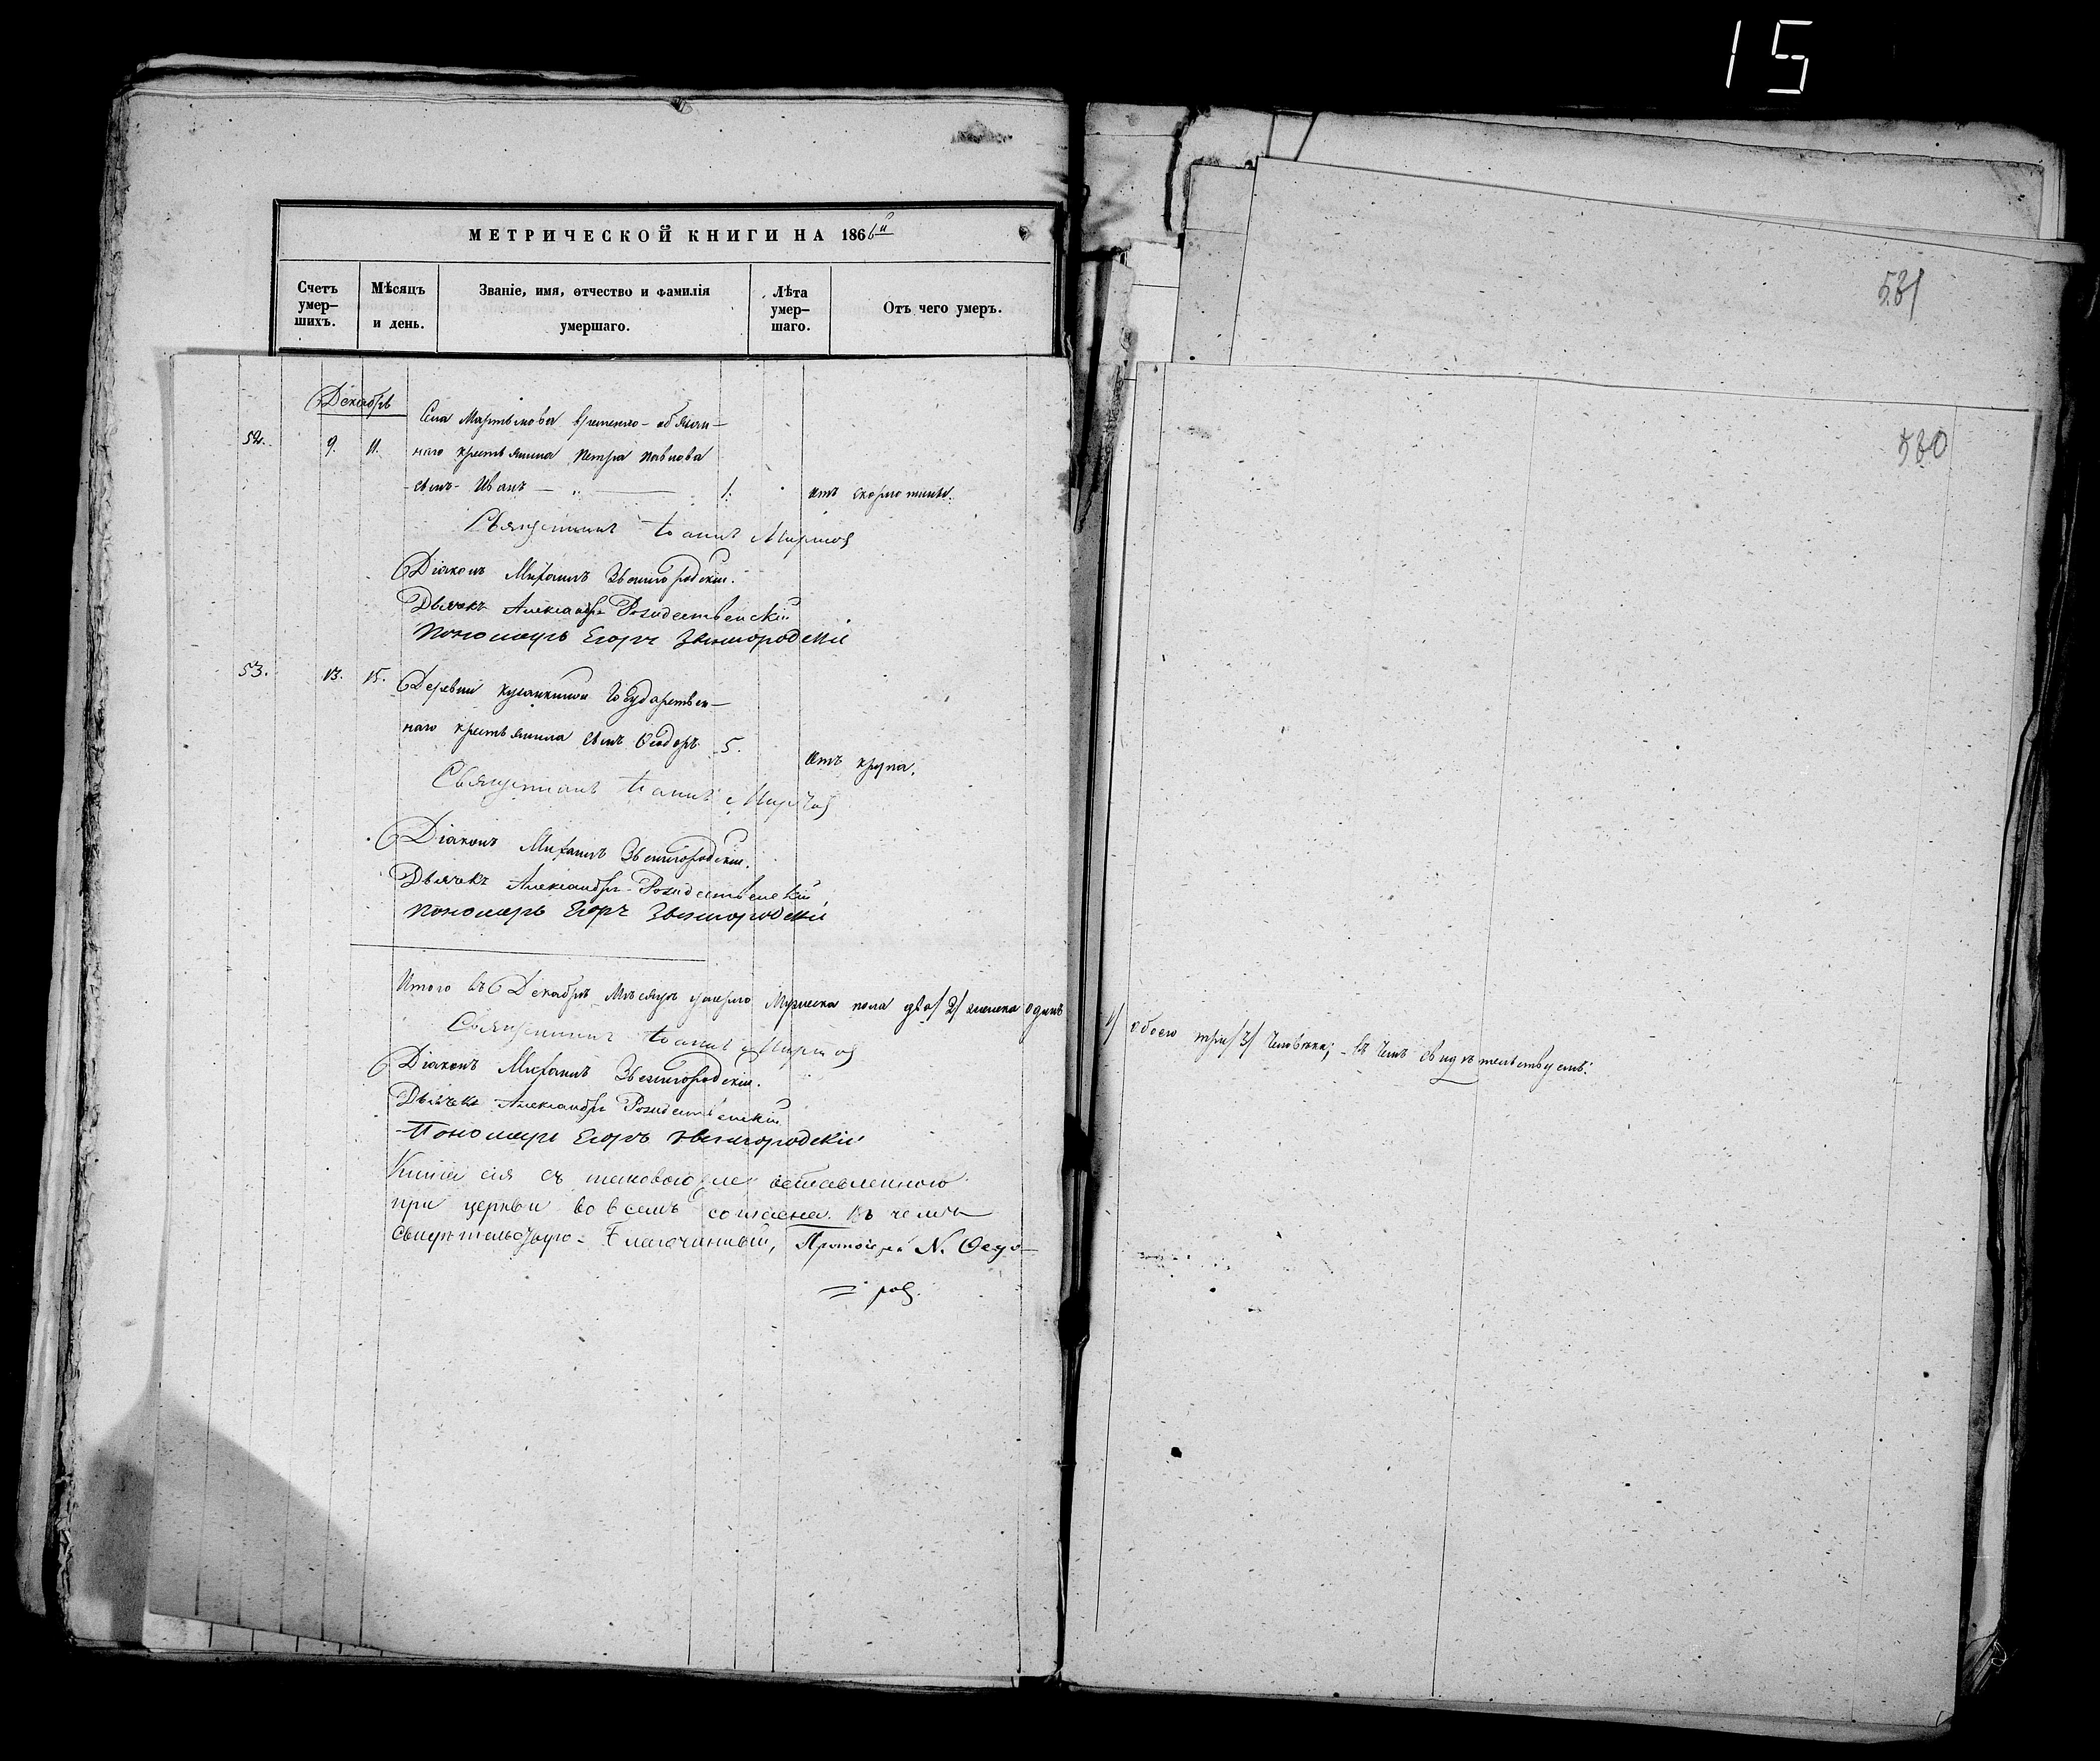 15
МЕТРИЧЕСКОЙ КНИГИ НА 1866й
Счетъ умер-шихъ.
Мѣсяцъ и день.
Званіе, имя, отчество и фамилія умершаго.
Лѣта умер-шаго.
Отъ чего умеръ.
581
580
Декабрь
Села Мартынова временно-обязан-
52. 9. 11. наго крестьянина Петра Павлова
сынъ Иванъ 1. отъ скоротички.
Священникъ Іоаннъ
Діаконъ Михаилъ Звенигородскій.
Дьячекъ Александръ Рождественскій
Пономарь Егоръ Звенигородскій
53. 13. 15. Деревни Государствен-
наго крестьянина сынъ Ѳеодоръ 5.
отъ крупа.
Священникъ Іоаннъ
Діаконъ Михаилъ Звенигородскій.
Дьячекъ Александръ Рождественскій
Пономарь Егоръ Звенигородскій
Итого въ Декабрѣ Мѣсяцѣ умерло Мужеска пола два /2/ женска одинъ
/1/ обоего три /3/ человѣка; въ чемъ свидѣтельствуемъ:
Священникъ Іоаннъ
Діаконъ Михаилъ Звенигородскій.
Дьячекъ Александръ Рождественскій
Пономарь Егоръ Звенигородскій
Книга сія съ таковою же оставленною
при церкви во всемъ согласна. Въ чемъ
свидѣтельствую Благочинный, Протоіерей N. Ѳедо-
= ровъ.